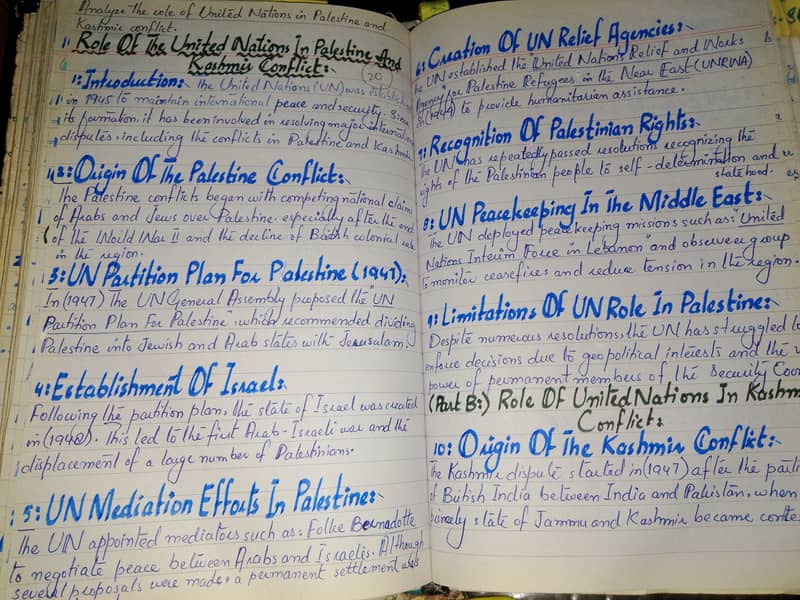 Analyze the role of United Nations in Palestine and
Kashmir conflict.
Role Of The United Nations In Palestine And
Kashmir Conflict:
20
1: Introduction: The United Nations (UN) was established
in 1945 to maintain international peace and security. Since
its formation, it has been involved in resolving major international
disputes, including the conflicts in Palestine and Kashmir
2: Origin Of The Palestine Conflict:
The Palestine conflicts began with competing national claims
of Arabs and Jews over Palestine. especially after the end
of the World War II and the decline of British colonial rule
in the region.
3: UN Partition Plan For Palestine (1947):
In (1947) The UN General Assembly proposed the "UN
Partition Plan For Palestine", which recommended dividing
Palestine into Jewish and Arab states with Jerusalem.
4: Establishment Of Israel:
Following the partition plan, the state of Israel was created
in (1948). This led to the first Arab-Israeli war and the
displacement of a large number of Palestinians.
5: UN Mediation Efforts In Palestine:
The UN appointed mediators such as: Folke Bernadotte
to negotiate peace between Arabs and Israelis. Although
several proposals were made, a permanent settlement
6: Creation Of UN Relief Agencies:
The UN established the United Nations Relief and Works
Agency "for Palestine Refugees in the Near East (UNRWA)
in (1949) to provide humanitarian assistance.
7: Recognition Of Palestinian Rights:
The UN has repeatedly passed resolutions recognizing the
rights of the Palestinian people to self-determination and
statehood.
8: UN Peacekeeping In The Middle East:
The UN deployed peacekeeping missions such as: "United
Nations Interim Force in Lebanon" and observer group
to monitor ceasefires and reduce tension in the region.
9: Limitations Of UN Role In Palestine:
Despite numerous resolutions, the UN has struggled to
enforce decisions due to geopolitical interests and the
power of permanent members of the Security
(Part B:) Role Of United Nations In Kashmir
Conflict:
10: Origin Of The Kashmir Conflict:
The Kashmir dispute started in (1947) after the
of British India between India and Pakistan, when
state of Jammu and Kashmir became